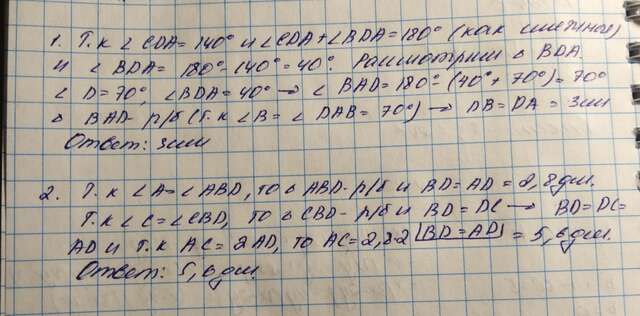 1. Т.к ∠ CDA= 140° и ∠CDA+∠BDA=180° (как смежные)
и ∠ BDA= 180°-140°=40°. Рассмотрим △ BDA.
∠ D=70°, ∠BDA=40° → ∠ BAD=180°-(40°+70°)=70°
△ BAD- р/б (т.к ∠B=∠ DAB=70°) → DB=DA=3см
Ответ: 3см
2. Т.к ∠A=∠ABD, то △ ABD-р/б и BD=AD=2,8дм.
Т.к ∠C=∠CBD, то △ CBD-р/б и BD=DC → BD=DC=
AD и т.к AC=2AD, то AC=2,8·2 [BD=AD] = 5,6дм.
Ответ: 5,6дм.